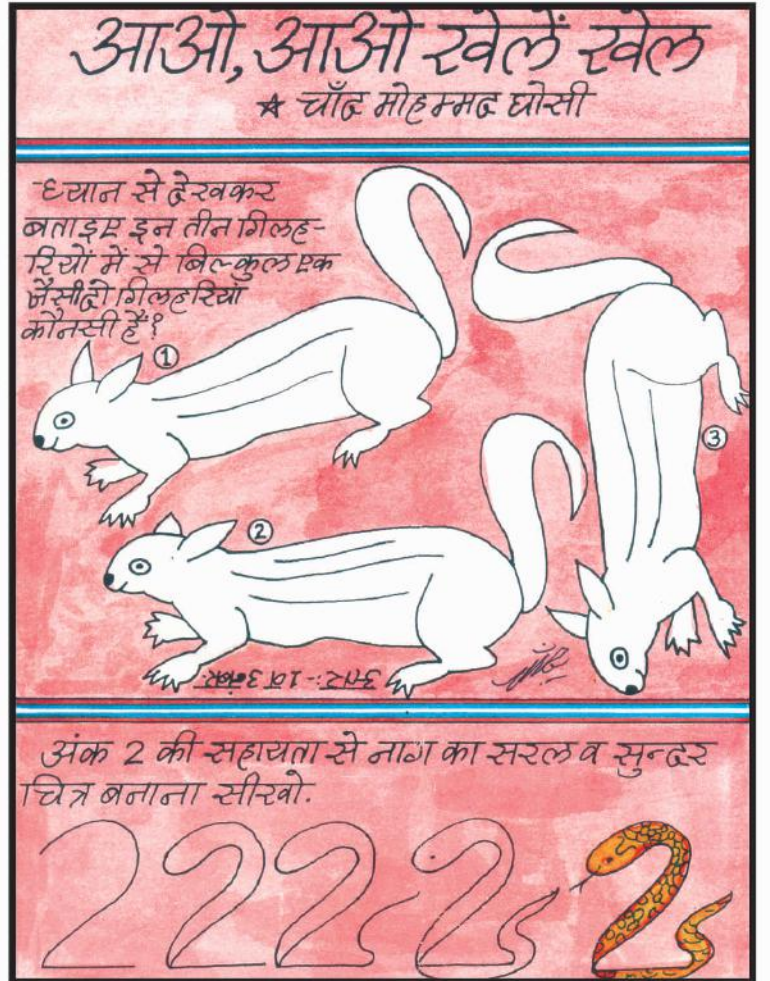 आओ, आओ खेलें खेल
☆ चाँद मोहम्मद घोसी
ध्यान से देखकर
बताइए इन तीन गिलह-
रियों में से बिल्कुल एक
जैसी दो गिलहरियां
कौनसी हैं?
1
2
3
उत्तर:- 1 व 3 नंबर.
अंक 2 की सहायता से नाग का सरल व सुन्दर
चित्र बनाना सीखो.
2 2 2 2 2